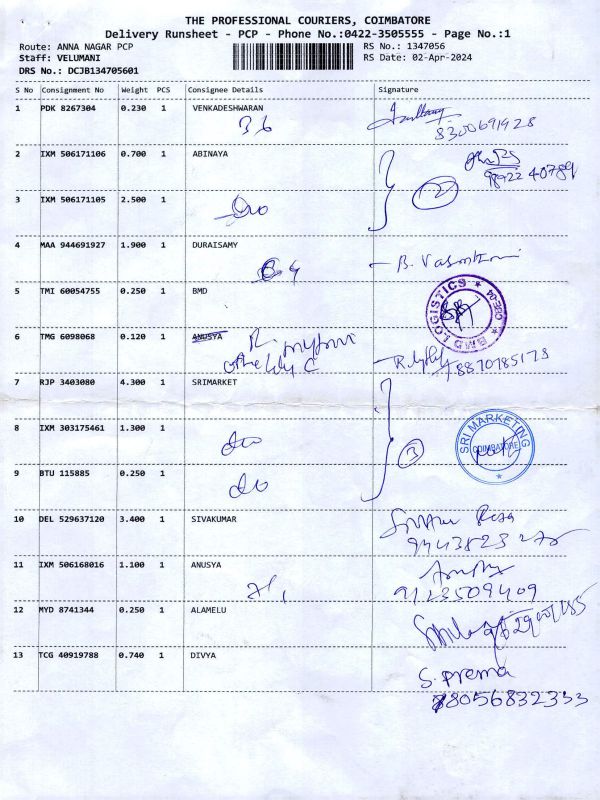 THE PROFESSIONAL COURIERS, COIMBATORE
Delivery Runsheet - PCP - Phone No.:0422-3505555 - Page No.:1
Route: ANNA NAGAR PCP RS No.: 1347056
Staff: VELUMANI RS Date: 02-Apr-2024
DRS No.: DCJB134705601
S No Consignment No Weight PCS Consignee Details Signature
1 PDK 8267304 0.230 1 VENKADESHWARAN
36 8300691928
2 IXM 506171106 0.700 1 ABINAYA
98922 40789
2
3 IXM 506171105 2.500 1
4 MAA 944691927 1.900 1 DURAISAMY
B. Vasanthi
5 TMI 60054755 0.250 1 BMD
BMD LOGISTICS
6 TMG 6098068 0.120 1 ANUSYA
8870785178
7 RJP 3403080 4.300 1 SRIMARKET
8 IXM 303175461 1.300 1
SRI MARKETING
COIMBATORE
3
9 BTU 115885 0.250 1
10 DEL 529637120 3.400 1 SIVAKUMAR
11 IXM 506168016 1.100 1 ANUSYA
9123509409
12 MYD 8741344 0.250 1 ALAMELU
13 TCG 40919788 0.740 1 DIVYA
S. Prema
8056832333